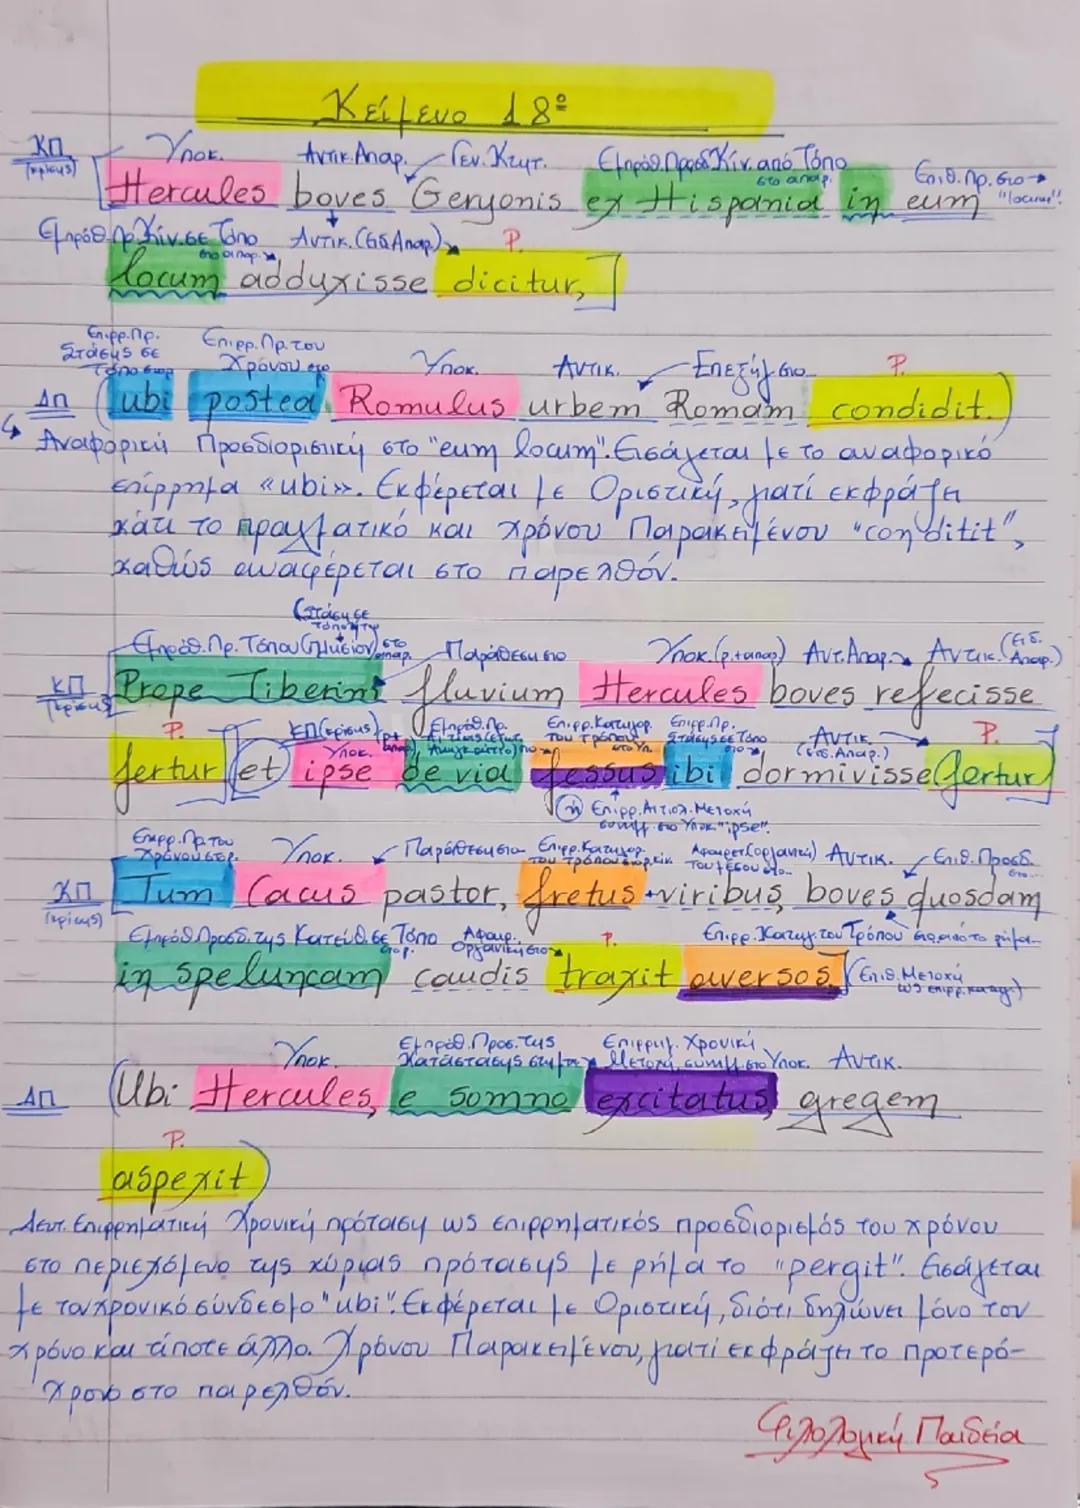 Κείμενο 18º
ΚΠ Υποκ. Αντικ. Απαρ. Γεν. Κτητ. Εμπρόθ. Προσδ. Κίν. από Τόπο
(κρίσης) στο απαρ. Επιθ. Πρ. στο
Hercules boves Geryonis ex Hispania in eum "locum".
Εμπρόθ. Πρ. Κίν. σε Τόπο Αντικ. (Ειδ. Απαρ.) Ρ.
στο απαρ.
locum adduxisse dicitur,
Επιρρ. Πρ. Επιρρ. Πρ. του
Στάσης σε Χρόνου στο Υποκ. Αντικ. Επεξήγ. στο Ρ.
Τόπο στο ρ.
ΔΠ (ubi postea Romulus urbem Romam condidit.)
Αναφορική Προσδιοριστική στο "eum locum". Εισάγεται με το αναφορικό
επίρρημα «ubi». Εκφέρεται με Οριστική, γιατί εκφράζει
κάτι το πραγματικό και χρόνου Παρακειμένου "conditit",
καθώς αναφέρεται στο παρελθόν.
(στάση σε
τόπο
Εμπρόθ. Πρ. Τόπου (πλησίον) στο απαρ. Παράθεση στο Υποκ. (ρ.+απαρ) Αντ. Απαρ. Αντικ. (Ειδ. Απαρ.)
ΚΠ Prope Tiberim fluvium Hercules boves refecisse
(κρίσης)
Ρ. ΚΠ (κρίσης) Εμπρόθ. Πρ. Επιρρ. Κατηγορ. Επιρρ. Πρ. Αντικ. Ρ.
Υποκ. του Τρόπου στο Υπ. Στάσης σε Τόπο στο (ειδ. Απαρ.)
fertur et ipse de via fessus ibi dormivisse (fertur)
(ή) Επιρρ. Αιτιολ. Μετοχή
συνημ. στο Υποκ "ipse".
Επιρρ. Πρ. του Υποκ. Παράθεση στο Επιρρ. Κατηγορ. Αφαιρετ. (οργανική) Αντικ. Επιθ. Προσδ.
Χρόνου στο ρ. του τρόπου στο ρ. κιν του μέσου στο... στο...
ΚΠ Tum Cacus pastor, fretus viribus, boves quosdam
(κρίσης)
Εμπρόθ. Προσδ. της Κατεύθ. σε Τόπο Αφαιρ. Ρ. Επιρρ. Κατηγ. του Τρόπου
στο ρ. Οργανική στο
in speluncam caudis traxit aversos. (Επιθ. Μετοχή
ως επιρρ. κατηγ.)
Υποκ. Εμπρόθ. Προσ. της Επιρρημ. Χρονική
Κατάστασης στη μετ. Μετοχή, συνημ. στο Υποκ. Αντικ.
ΔΠ (Ubi Hercules, e somno excitatus, gregem
Ρ.
aspexit)
Δευτ. Επιρρηματική Χρονική πρόταση ως επιρρηματικός προσδιορισμός του χρόνου
στο περιεχόμενο της κύριας πρότασης με ρήμα το "pergit". Εισάγεται
με τον χρονικό σύνδεσμο "ubi". Εκφέρεται με Οριστική, διότι δηλώνει μόνο τον
χρόνο και τίποτε άλλο. Χρόνου Παρακειμένου, γιατί εκφράζει το προτερό-
χρονο στο παρελθόν.
Φιλολογική Παιδεία